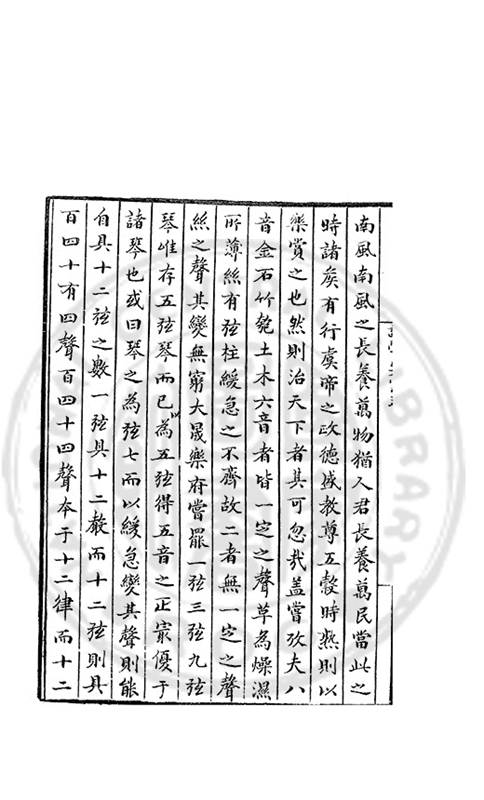 南風南風之長養萬物猶人君長養萬民當此之
時諸矦有行虞帝之政德盛教尊五穀時熟則以
樂賞之也然則治天下者其可忽哉盖嘗攷夫八
音金石竹匏土木六音者皆一定之聲草為燥濕
所薄絲有弦柱緩急之不齊故二者無一定之聲
絲之聲其變無窮大晟樂府嘗罷一弦三弦九弦
琴惟存五弦琴而已以為五弦得五音之正㝡優于
諸琴也或曰琴之為弦七而以緩急變其聲則能
自具十二弦之數一弦具十二聲而十二弦則具
百四十有四聲百四十四聲本于十二律而十二